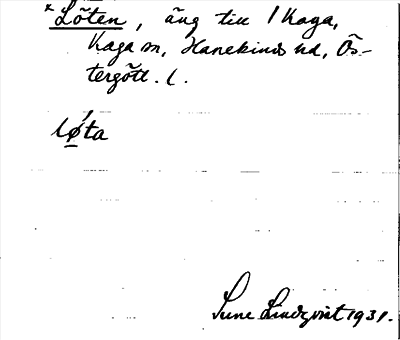 * Löten, äng till 1 Kaga,
Kaga sn, Hanekinds hd, Ös-
tergötl. l.
lø´ta
Sune Lindqvist 1931.